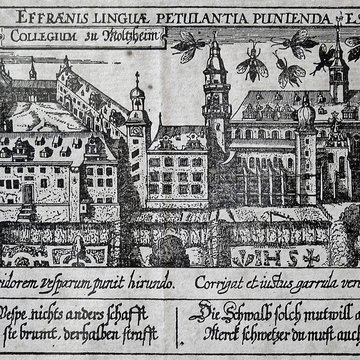 EFFRÆNIS LINGUÆ PETULANTIA PUNIENDA
COLLEGIUM zu Moltzheim
IHS
vesparum punit hirundo. Corrigat et iustus garrula
Wespe nichts anders schafft
sie brumt, derhalben strafft
Die Schwalb solch mutwill
Merck schwetzer du must auch